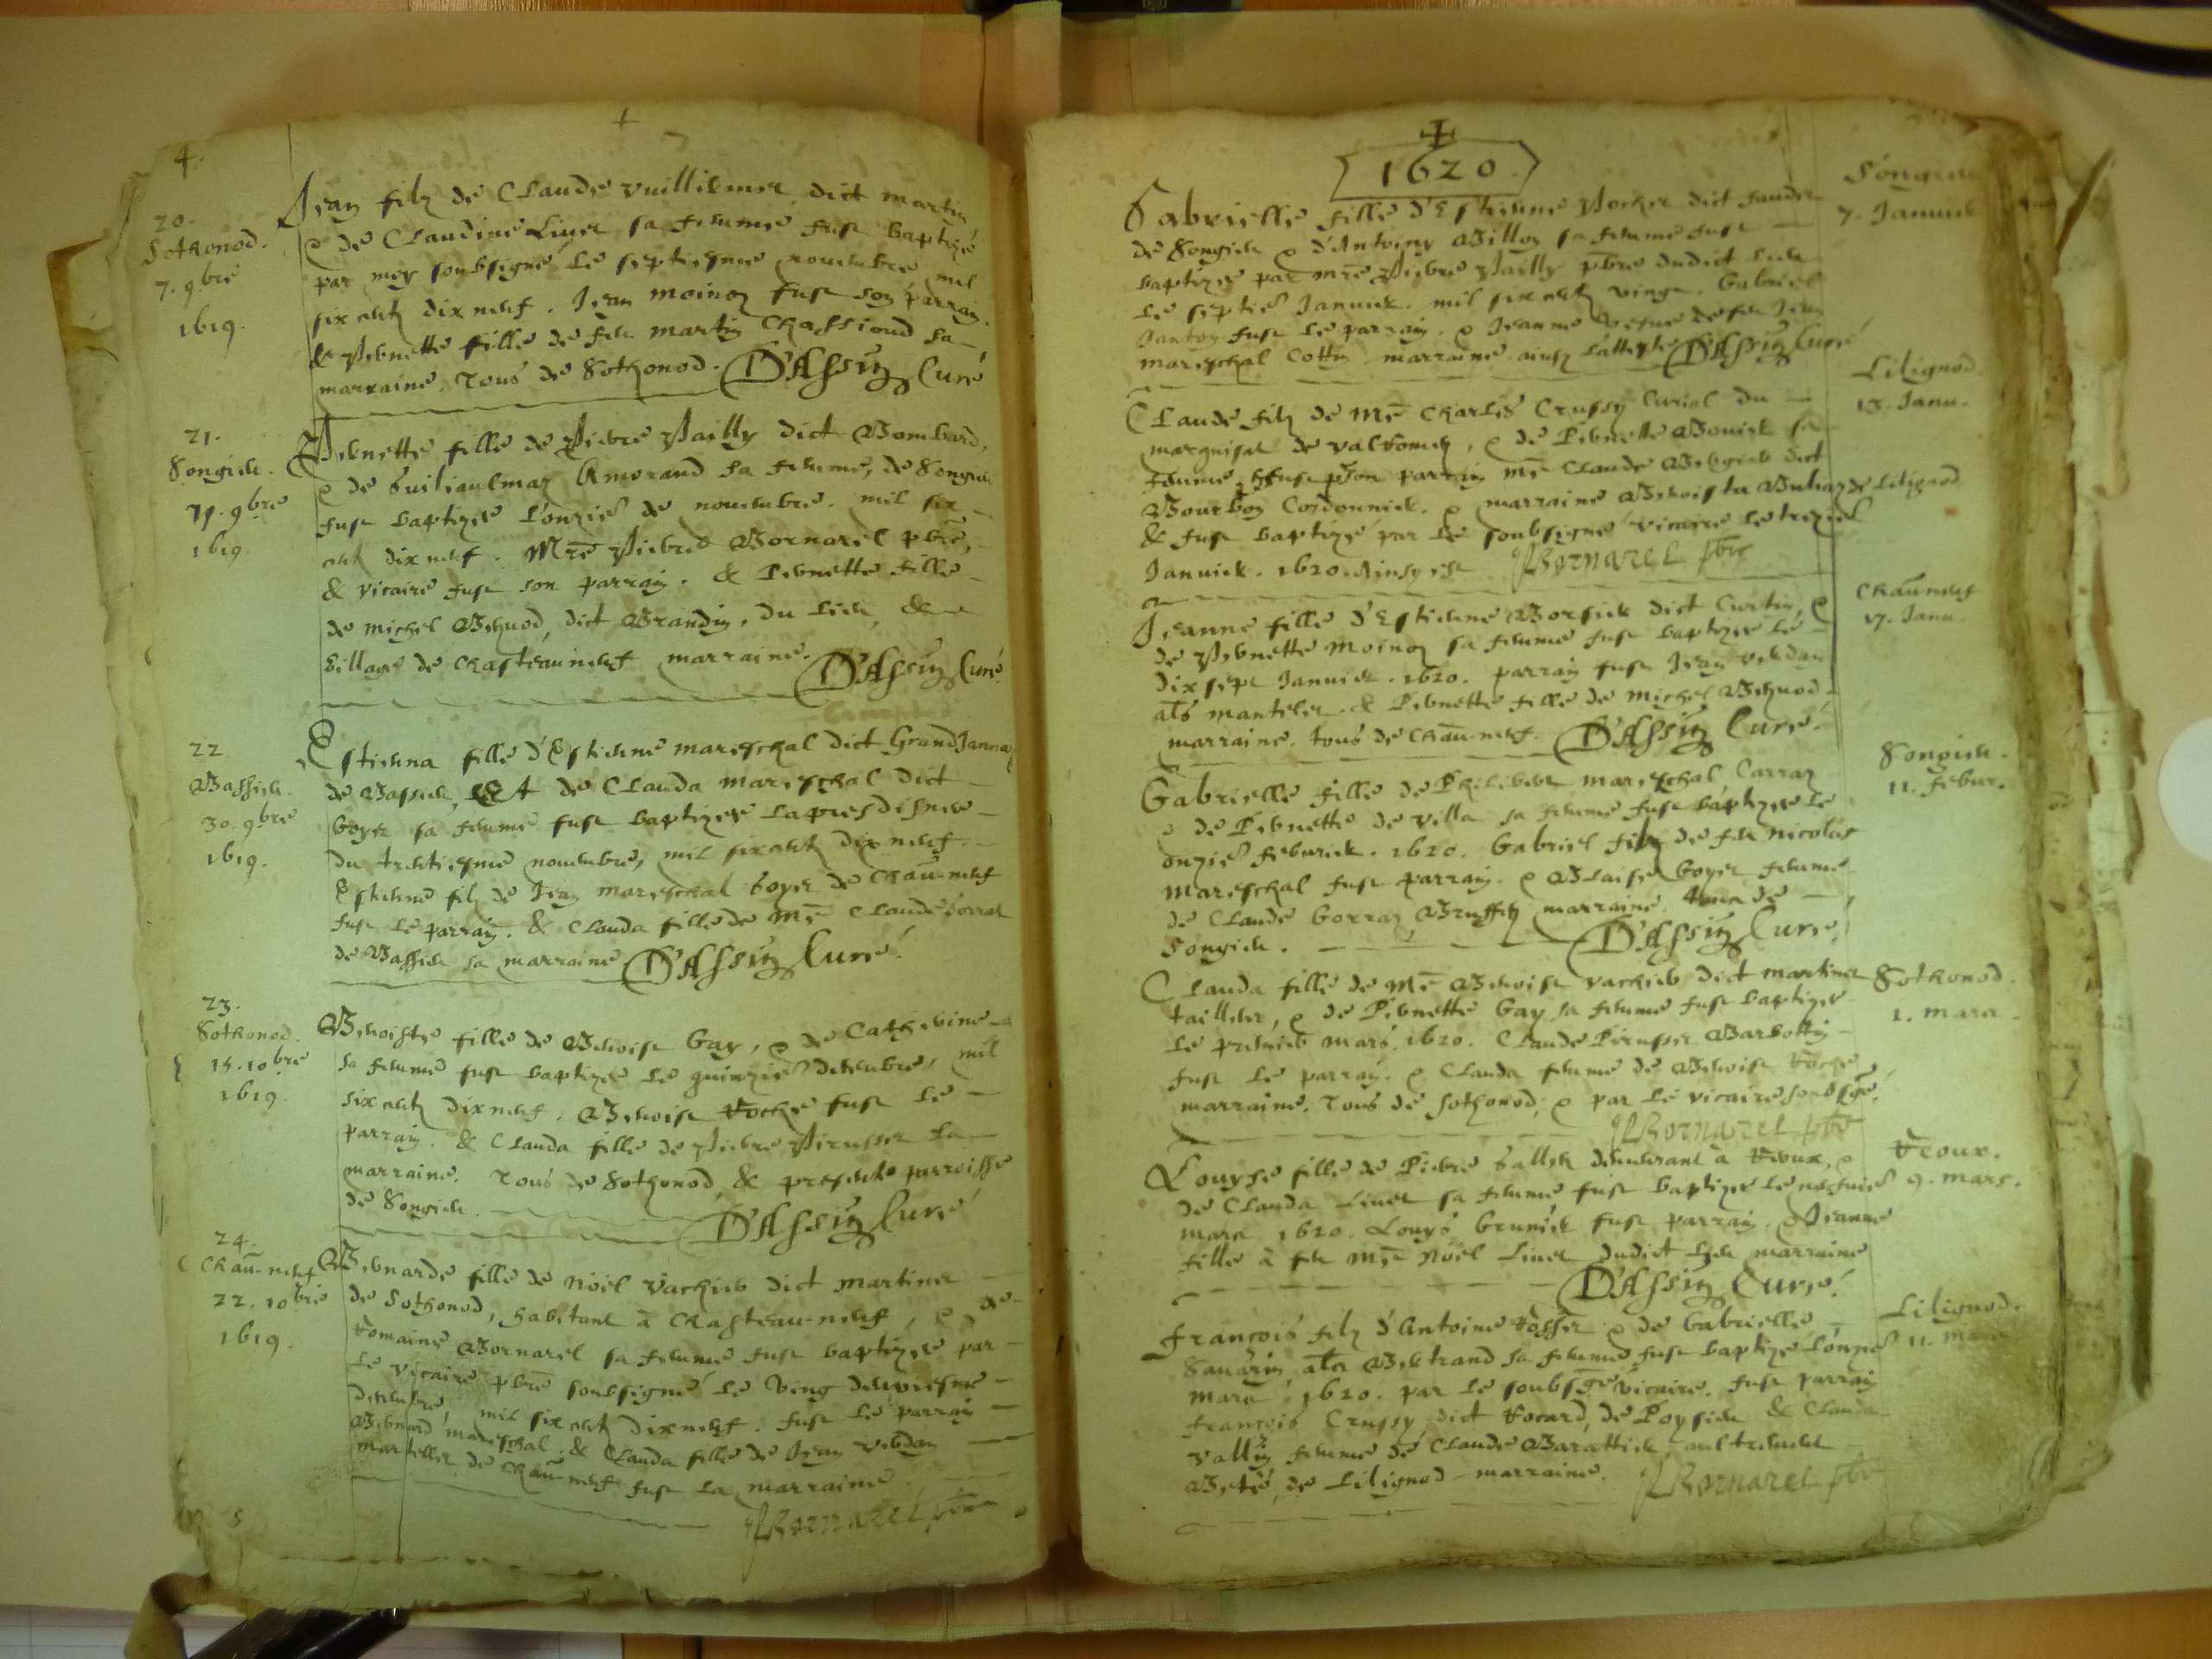 4.
20.
Sothonod.
7. 9bre
1619.
Jean filz de Claude Vuilliermet dict martin
& de Claudine Livet sa femme fust baptizé
par moy soubsigné le septiesme novembre mil
six centz dix neuf. Jean moinoz fust son parrain.
& Pernette fille de feu martin Chassioud sa
marraine. Tous de Sothonod. D'Assin Curé
21.
Songieu.
1619.
Pernette fille de Pierre Pailly dict Bombard,
& de Amorand sa femme, de Songieu
fust baptizee l'onzie de novembre. mil six
centz dix neuf. Mre Pierre Bornarel pbre
& vicaire fust son parrain. & Pernette fille
de michel dict Brandin, du lieu, &
village de Chasteauneuf marraine. D'Assin Curé
22
Bassieu.
30. 9bre
1619.
Estienna fille d'Estienne mareschal dict Grand
de Bassieu, Et de Clauda mareschal dict
boyer sa femme fust baptizee l'apresdisnee
du trentiesme novembre, mil six centz dix neuf.
Estienne filz de Jean mareschal boyer de Chau-neuf
fust le parrain. & Clauda fille de Me Claude
de Bassieu sa marraine. D'Assin Curé
23.
Sothonod.
15. 10bre
1619.
Benoiste fille de Benoist Gay, & de Catherine
sa femme fust baptizee le quinzie decembre, mil
six centz dix neuf. Benoist Roche fust le
parrain. & Clauda fille de Pierre Pirusset la
marraine. Tous de Sothonod, & presente parroisse
de Songieu. D'Assin Curé
24.
Chau-neuf
22. 10bre
1619.
Bernarde fille de Noël Vachier dict martinet
de Sothonod, habitant à Chasteau-neuf, & de
Romaine Bornarel sa femme fust baptizee par
le vicaire pbre soubsigné le Ving deuxiesme
decembre, mil six centz dix neuf. fust le parrain
Bernard mareschal. & Clauda fille de Jean verdan
de Chau-neuf fust la marraine.
Bornarel pbre
1620.
Songieu
7. Janvier
Gabrielle fille d'Estienne dict
de Songieu & d'Antoyne Billon sa femme fust
baptizee par mre Pierre Pailly pbre dudict lieu
le septie Janvier. mil six centz vingt. Gabriel
Janton fust le parrain. & Jeanne vefve de feu Jean
mareschal Cottin marraine. ainsy l'atteste D'Assin Curé
Lilignod.
13. Janv.
Claude filz de Me Charles Crussy Curial du
marquisat de valromey, & de Pernette Bouvier sa
femme, fust son parrain Me Claude dict
Bourbon Cordonnier. & marraine Benoista de Lilignod
& fust baptizé par le soubsigné vicaire le trezie
Janvier. 1620. Ainsy est Bornarel pbre
Chauneuf
17. Janv.
Jeanne fille d'Estienne Borsier dict Curtin, &
de Pernette Moinoz sa femme fust baptizee le
dix sept Janvier. 1620. parrain fust Jean verdan
als mantelier. & Pernette fille de michel
marraine. tous de Chau-neuf. D'Assin Curé.
Songieu.
11. febvr.
Gabrielle fille de Philibert mareschal Carraz
& de Pernette de villa sa femme fust baptizee le
onzie febvrier. 1620. Gabriel filz de feu nicolas
mareschal fust parrain. & Blaise boyer femme
de Claude Gorraz marraine. de
Songieu. D'Assin Curé.
Sothonod.
1. mars.
Clauda fille de Me Benoist vachier dict martinet
tailleur, & de Pernette Gay sa femme fust baptizee
le premier mars. 1620. Claude Pirusset Barbottin
fust le parrain. & Clauda femme de Benoist Roche
marraine. Tous de Sothonod, & par le vicaire soubsgé.
Bornarel pbre
9. mars.
Louyse fille de Pierre Gallet demeurant à &
de Clauda Livet sa femme fust baptizee le neufvie
mars 1620. Louys brunier fust parrain. & Jeanne
fille à feu Me Noël Livet dudict lieu marraine
D'Assin Curé.
Lilignod.
11. mars
François filz d'Antoine Rosset & de Gabrielle
Savarin, als Bertrand sa femme fust baptizé l'onzie
mars 1620. par le soubsgé vicaire. fust parrain
François Crussy, dict Rocard, de Poysieu & Clauda
Vallin femme de Claude Barattier, aultrement
de Lilignod marraine. Bornarel pbre